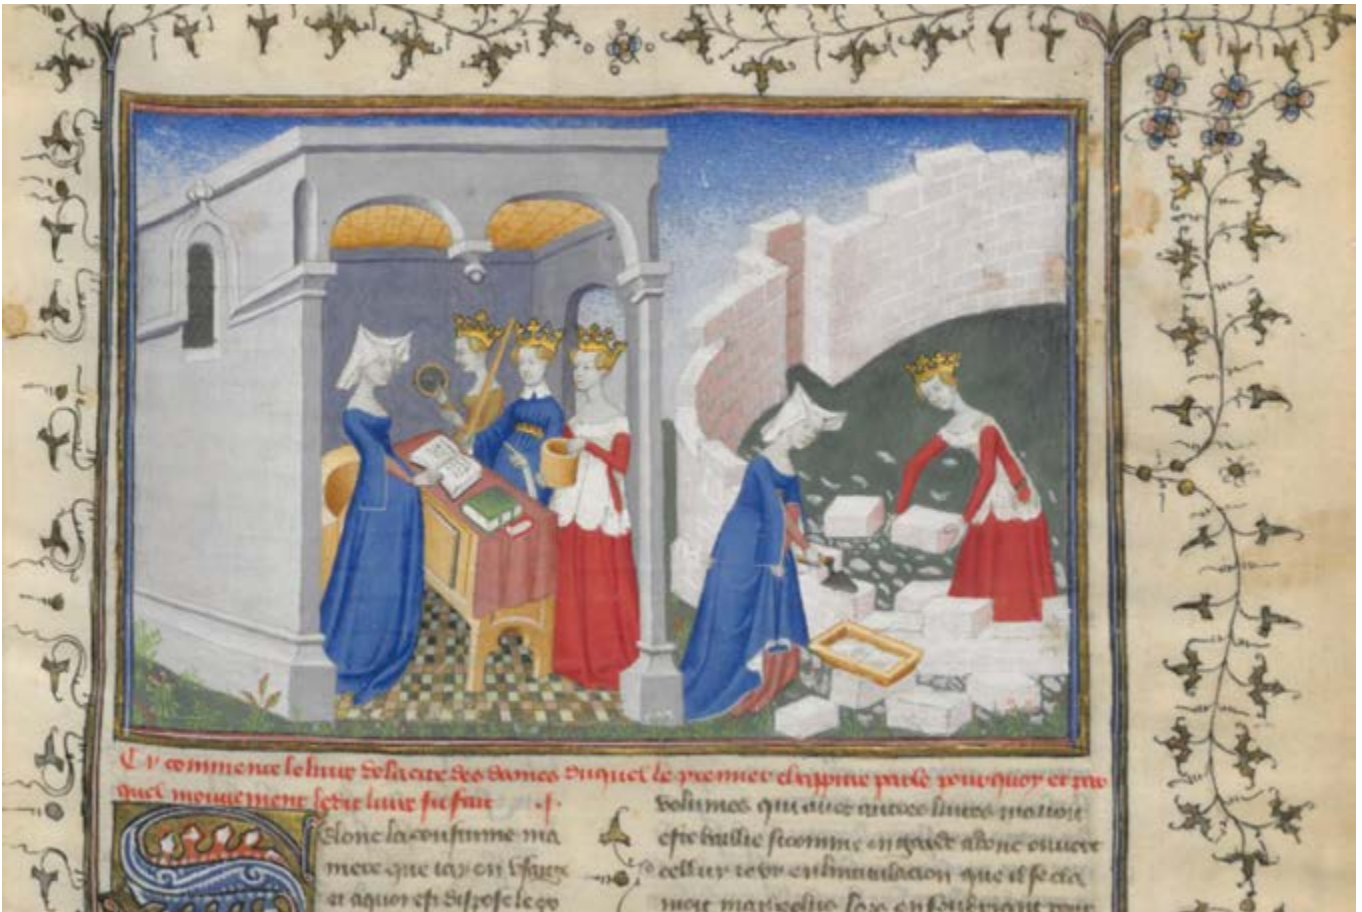 Cy commence le liure de la cite des dames duquel le premier chappitre parle pourquoy et par
quel mouuement ledit liure fu fait .I.
Selonc la coustume ma
niere que iay en vsaige
et aquoy est dispose le
volumes qui auec autres liures mauoit
este baillie si comme en garde adonc ouuert
cellui ie vy en lintitulacion que il se cla
moit matheolus lors en sousriant pour